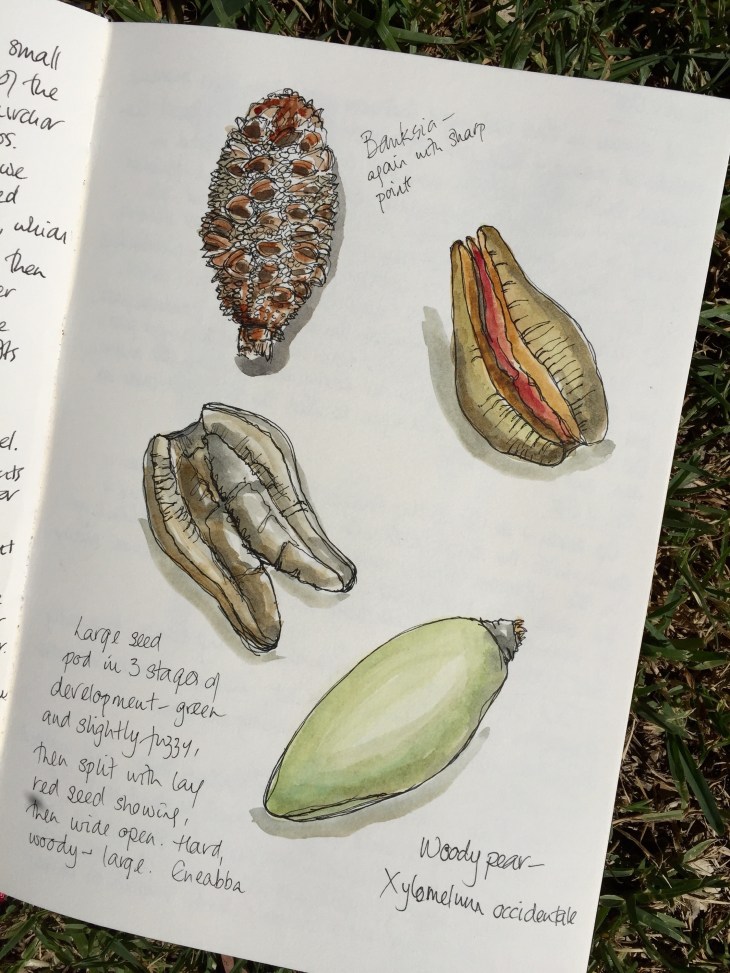 small
of the
os.
we
ed
, which
then
er
e
ts
el.
ts
or
et
r
r.
w
Banksia –
again with sharp
point
Large seed
pod in 3 stages of
development – green
and slightly fuzzy,
then split with lay
red seed showing,
then wide open. Hard,
woody – large. Eneabba
Woody pear –
Xylomelum occidentale